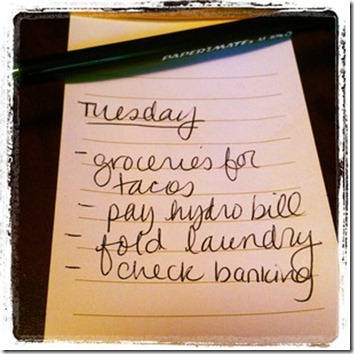 PAPERMATE
Tuesday
- groceries for
tacos
- pay hydro bill
- fold laundry
- check banking